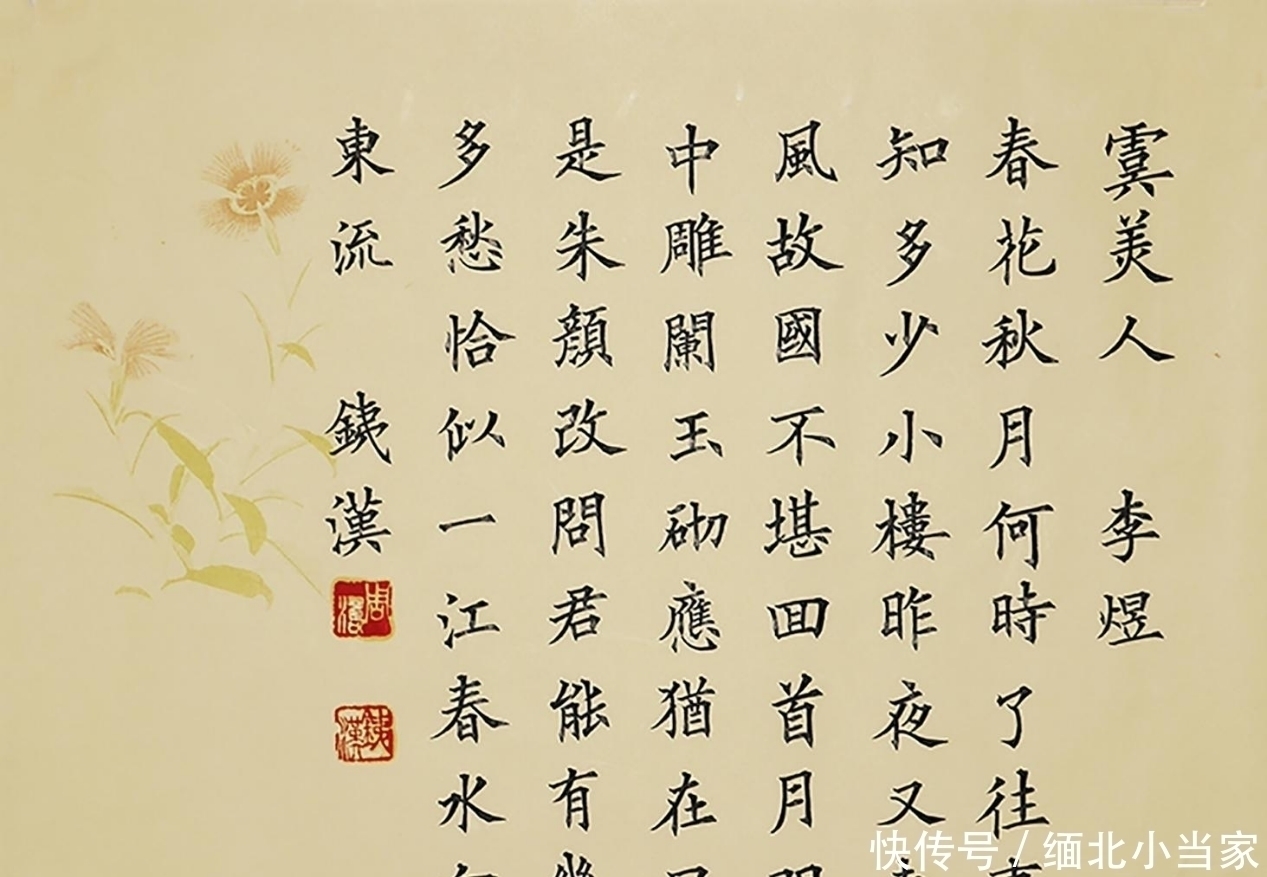 虞美人 李煜
春花秋月何時了往
知多少小樓昨夜又
風故國不堪回首月
中雕闌玉砌應猶在
是朱顏改問君能有
多愁恰似一江春水
東流 銕漢
周
銕漢
快传号/缅北小当家